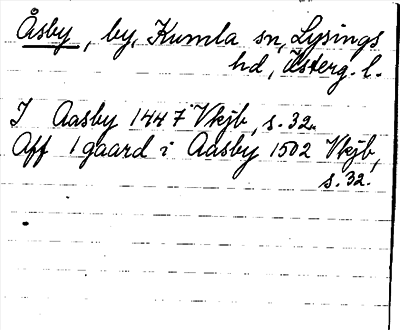 Åsby, by, Kumla sn, Lysings
hd, Österg. l.
I Aasby 1447 Vkjb, s. 32.
Aff 1 gaard i Aasby 1502 Vkjb,
s. 32.